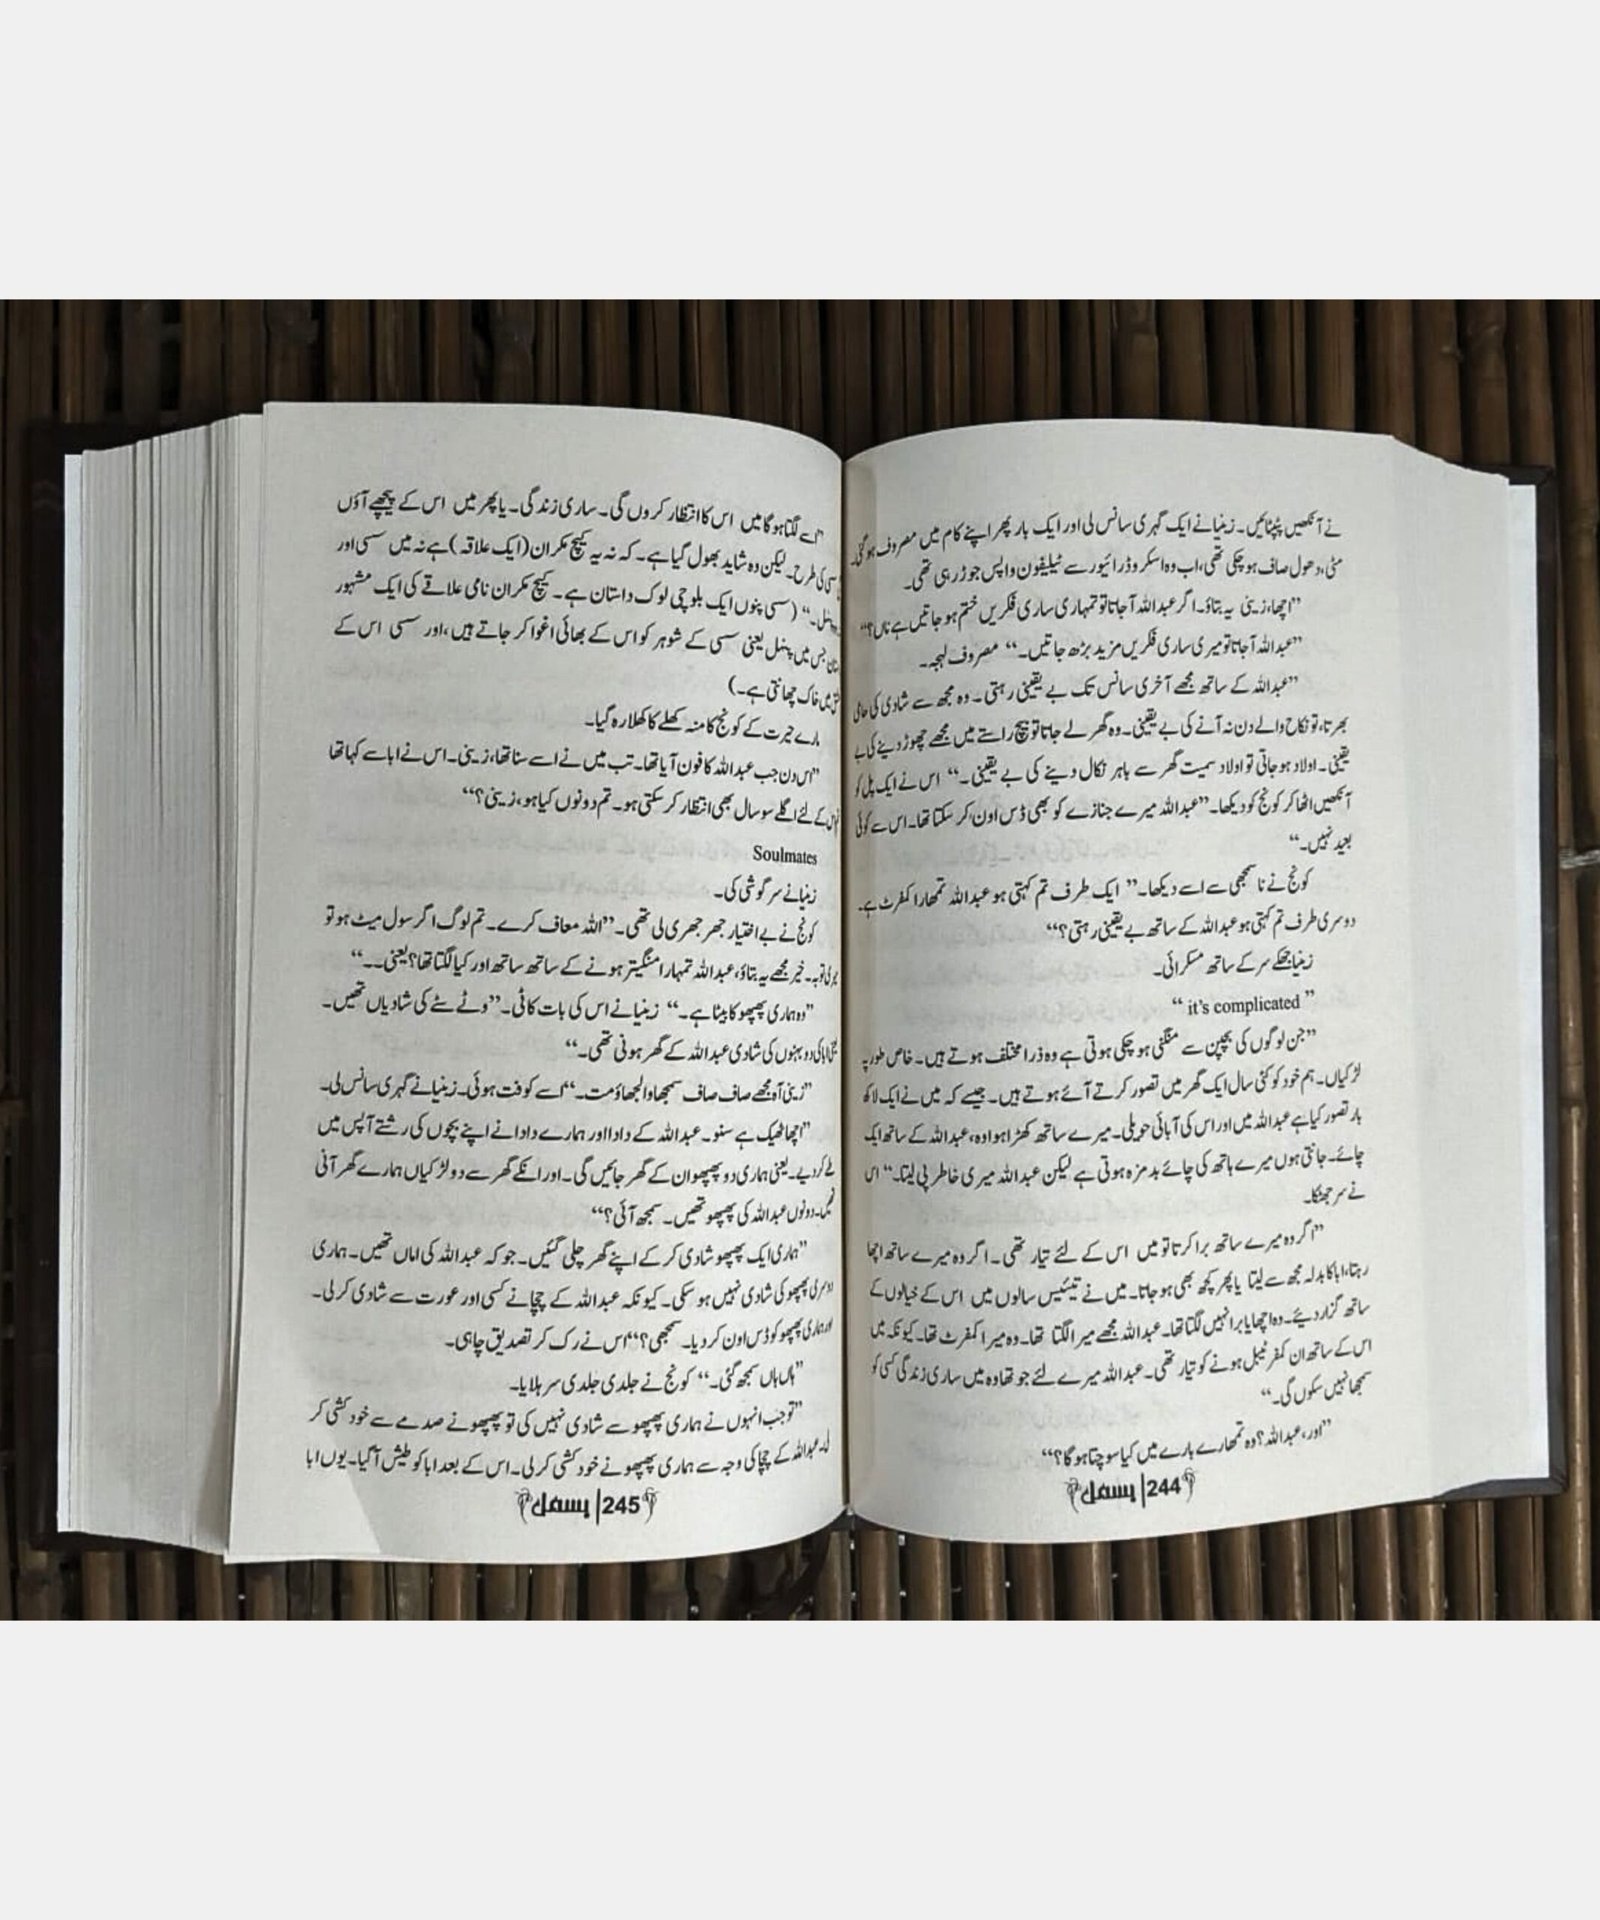 نے آنکھیں پٹپٹائیں۔ زینیا نے ایک گہری سانس لی اور ایک بار پھر اپنے کام میں مصروف ہوگئی۔
مٹی، دھول صاف ہوچکی تھی، اب وہ اسکروڈرائیور سے ٹیلیفون واپس جوڑ رہی تھی۔
”اچھا، زینی یہ بتاؤ۔ اگر عبداللہ آ جاتا تو تمہاری ساری فکریں ختم ہو جاتیں ہے ناں؟“
”عبداللہ آ جاتا تو میری ساری فکریں مزید بڑھ جاتیں۔“ مصروف لہجہ۔
”عبداللہ کے ساتھ مجھے آخری سانس تک بے یقینی رہتی۔ وہ مجھ سے شادی کی حامی
بھرتا، تو نکاح والے دن نہ آنے کی بے یقینی۔ وہ گھر لے جاتا تو بیچ راستے میں مجھے چھوڑ دینے کی بے
یقینی۔ اولاد ہو جاتی تو اولاد سمیت گھر سے باہر نکال دینے کی بے یقینی۔“ اس نے ایک پل کو
آنکھیں اٹھا کر کونج کو دیکھا۔ ”عبداللہ میرے جنازے کو بھی ڈس اون کر سکتا تھا۔ اس سے کوئی
بعید نہیں۔“
کونج نے ناسمجھی سے اسے دیکھا۔ ” ایک طرف تم کہتی ہو عبداللہ تمھارا کمفرٹ ہے۔
دوسری طرف تم کہتی ہو عبداللہ کے ساتھ بے یقینی رہتی؟“
زینیا جھکے سر کے ساتھ مسکرائی۔
” it's complicated “
”جن لوگوں کی بچپن سے منگنی ہو چکی ہوتی ہے وہ ذرا مختلف ہوتے ہیں۔ خاص طور پہ
لڑکیاں۔ ہم خود کو کئی سال ایک گھر میں تصور کرتے آئے ہوتے ہیں۔ جیسے کہ میں نے ایک لاکھ
بار تصور کیا ہے عبداللہ میں اور اس کی آبائی حویلی۔ میرے ساتھ کھڑا ہوا وہ، عبداللہ کے ساتھ ایک
چائے۔ جانتی ہوں میرے ہاتھ کی چائے بدمزہ ہوتی ہے لیکن عبداللہ میری خاطر پی لیتا۔“ اس
نے سر جھٹکا۔
”اگر وہ میرے ساتھ برا کرتا تو میں اس کے لئے تیار تھی۔ اگر وہ میرے ساتھ اچھا
رہتا، ابا کا بدلہ مجھ سے لیتا یا پھر کچھ بھی ہو جاتا۔ میں نے تیئیس سالوں میں اس کے خیالوں کے
ساتھ گزار دیئے۔ وہ اچھا یا برا نہیں لگتا تھا۔ عبداللہ مجھے میرا لگتا تھا۔ وہ میرا کمفرٹ تھا۔ کیونکہ میں
اس کے ساتھ ان کمفرٹیبل ہونے کو تیار تھی۔ عبداللہ میرے لئے جو تھا وہ میں ساری زندگی کسی کو
سمجھا نہیں سکوں گی۔“
”اور، عبداللہ؟ وہ تمھارے بارے میں کیا سوچتا ہوگا؟“
بسمل|244
”اسے لگتا ہوگا میں اس کا انتظار کروں گی۔ ساری زندگی۔ یا پھر میں اس کے پیچھے آؤں
سسی کی طرح۔ لیکن وہ شاید بھول گیا ہے۔ کہ نہ یہ کیچ مکران (ایک علاقہ) ہے نہ میں سسی اور
(سسی پنوں ایک بلوچی لوک داستان ہے۔ کیچ مکران نامی علاقے کی ایک مشہور
جس میں پنہل یعنی سسی کے شوہر کو اس کے بھائی اغوا کر جاتے ہیں، اور سسی اس کے
میں خاک چھانتی ہے۔)
مارے حیرت کے کونج کا منہ کھلے کا کھلا رہ گیا۔
”اس دن جب عبداللہ کا فون آیا تھا۔ تب میں نے اسے سنا تھا، زینی۔ اس نے ابا سے کہا تھا
کے لئے اگلے سو سال بھی انتظار کر سکتی ہو۔ تم دونوں کیا ہو، زینی؟“
Soulmates
زینیا نے سرگوشی کی۔
کونج نے بے اختیار جھرجھری لی تھی۔ ”اللہ معاف کرے۔ تم لوگ اگر سول میٹ ہو تو
توبہ۔ خیر مجھے یہ بتاؤ، عبداللہ تمہارا منگیتر ہونے کے ساتھ ساتھ اور کیا لگتا تھا؟ یعنی۔۔“
”وہ ہماری پھپھو کا بیٹا ہے۔“ زینیا نے اس کی بات کاٹی۔ ”وٹے سٹے کی شادیاں تھیں۔
ابا کی دو بہنوں کی شادی عبداللہ کے گھر ہونی تھی۔“
”زینی آہ مجھے صاف صاف سمجھاو الجھاؤ مت۔“ اسے کوفت ہوئی۔ زینیا نے گہری سانس لی۔
”اچھا ٹھیک ہے سنو۔ عبداللہ کے دادا اور ہمارے دادا نے اپنے بچوں کی رشتے آپس میں
طے کر دیے۔ یعنی ہماری دو پھپھو ان کے گھر جائیں گی۔ اور انکے گھر سے دو لڑکیاں ہمارے گھر آنی
تھیں۔ دونوں عبداللہ کی پھپھو تھیں۔ سمجھ آئی؟“
”ہماری ایک پھپھو شادی کر کے اپنے گھر چلی گئیں۔ جو کہ عبداللہ کی اماں تھیں۔ ہماری
دوسری پھپھو کی شادی نہیں ہو سکی۔ کیونکہ عبداللہ کے چچا نے کسی اور عورت سے شادی کر لی۔
اور ہماری پھپھو کو ڈس اون کر دیا۔ سمجھی؟“ اس نے رک کر تصدیق چاہی۔
”ہاں ہاں سمجھ گئی۔“ کونج نے جلدی جلدی سر ہلایا۔
”تو جب انہوں نے ہماری پھپھو سے شادی نہیں کی تو پھپھو نے صدمے سے خودکشی کر
لی۔ عبداللہ کے چچا کی وجہ سے ہماری پھپھو نے خودکشی کر لی۔ اس کے بعد ابا کو طیش آگیا۔ یوں ابا
بسمل|245